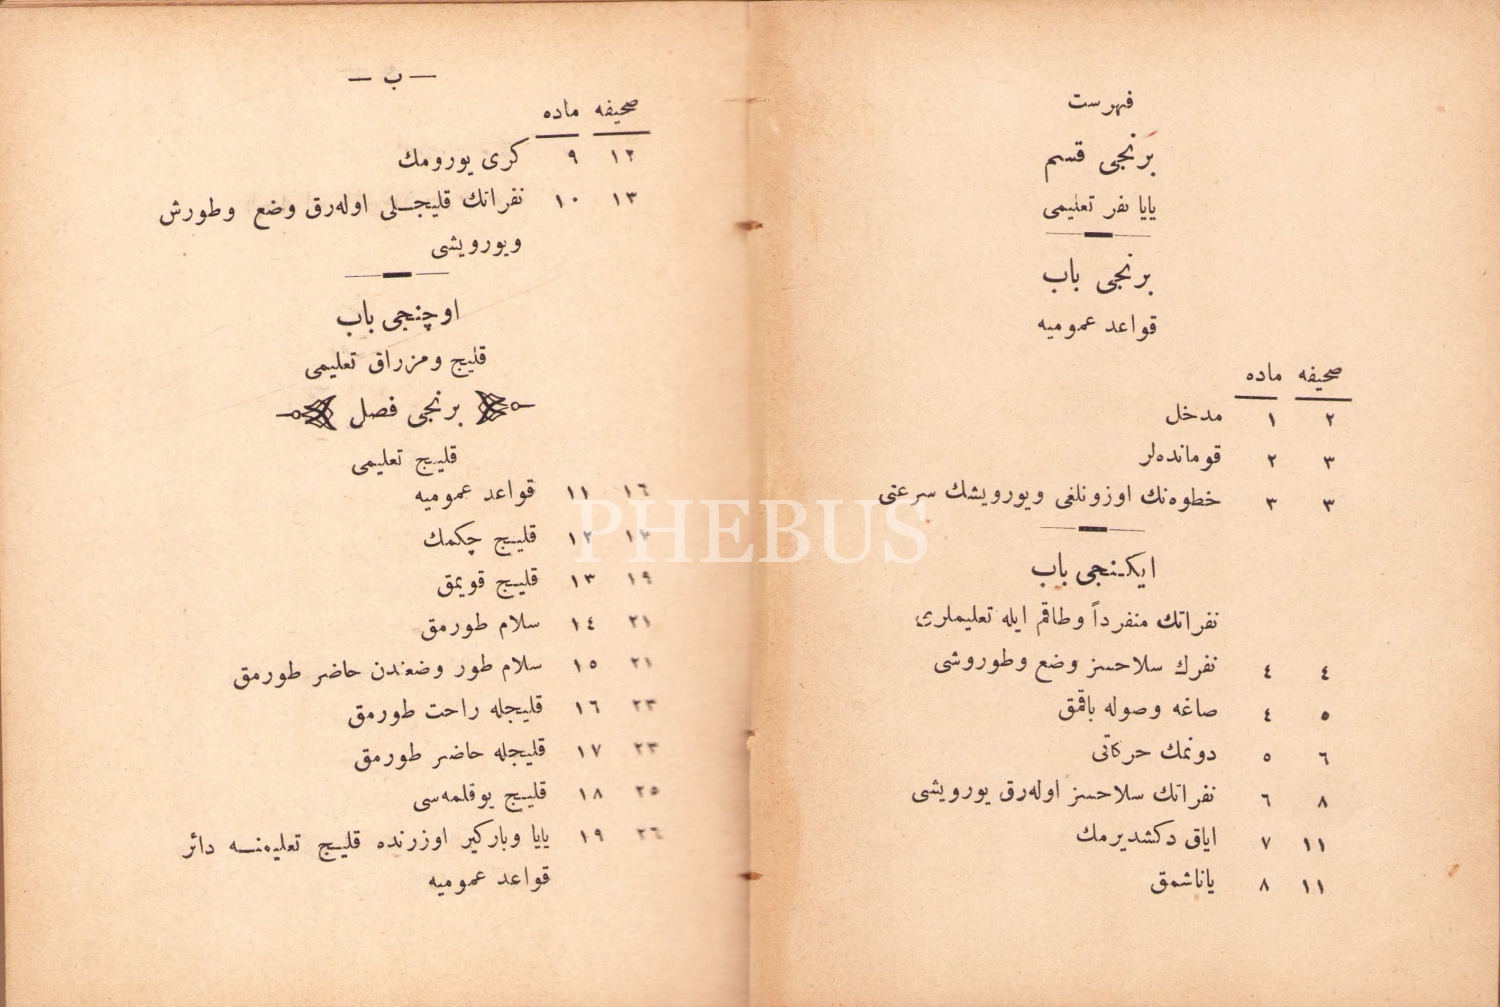 فهرست
برنجی قسم
یایا نفر تعلیمی
برنجی باب
قواعد عمومیه
صحیفه ماده
٢ ١ مدخل
٣ ٢ قومانده‌لر
٣ ٣ خطوه‌نك اوزونلغی ویورویشك سرعتی
ایكنجی باب
نفراتك منفرداً وطاقم ایله تعلیملری
٤ ٤ نفرك سلاحسز وضع وطوروشی
٥ ٤ صاغه وصوله باقمق
٦ ٥ دونمك حركاتی
٨ ٦ نفراتك سلاحسز اوله‌رق یورویشی
١١ ٧ ایاق دكشدیرمك
١١ ٨ یاناشمق
— ب —
صحیفه ماده
١٢ ٩ كری یورومك
١٣ ١٠ نفراتك قلیجلی اوله‌رق وضع وطورش
ویورویشی
اوچنجی باب
قلیج ومزراق تعلیمی
برنجی فصل
قلیج تعلیمی
١٦ ١١ قواعد عمومیه
١٢ قلیج چكمك
١٩ ١٣ قلیج قویمق
٢١ ١٤ سلام طورمق
٢١ ١٥ سلام طور وضعندن حاضر طورمق
٢٣ ١٦ قلیجله راحت طورمق
٢٣ ١٧ قلیجله حاضر طورمق
٢٥ ١٨ قلیج یوقلمه‌سی
٢٦ ١٩ یایا وباركیر اوزرنده قلیج تعلیمنه دائر
قواعد عمومیه
PHEBUS